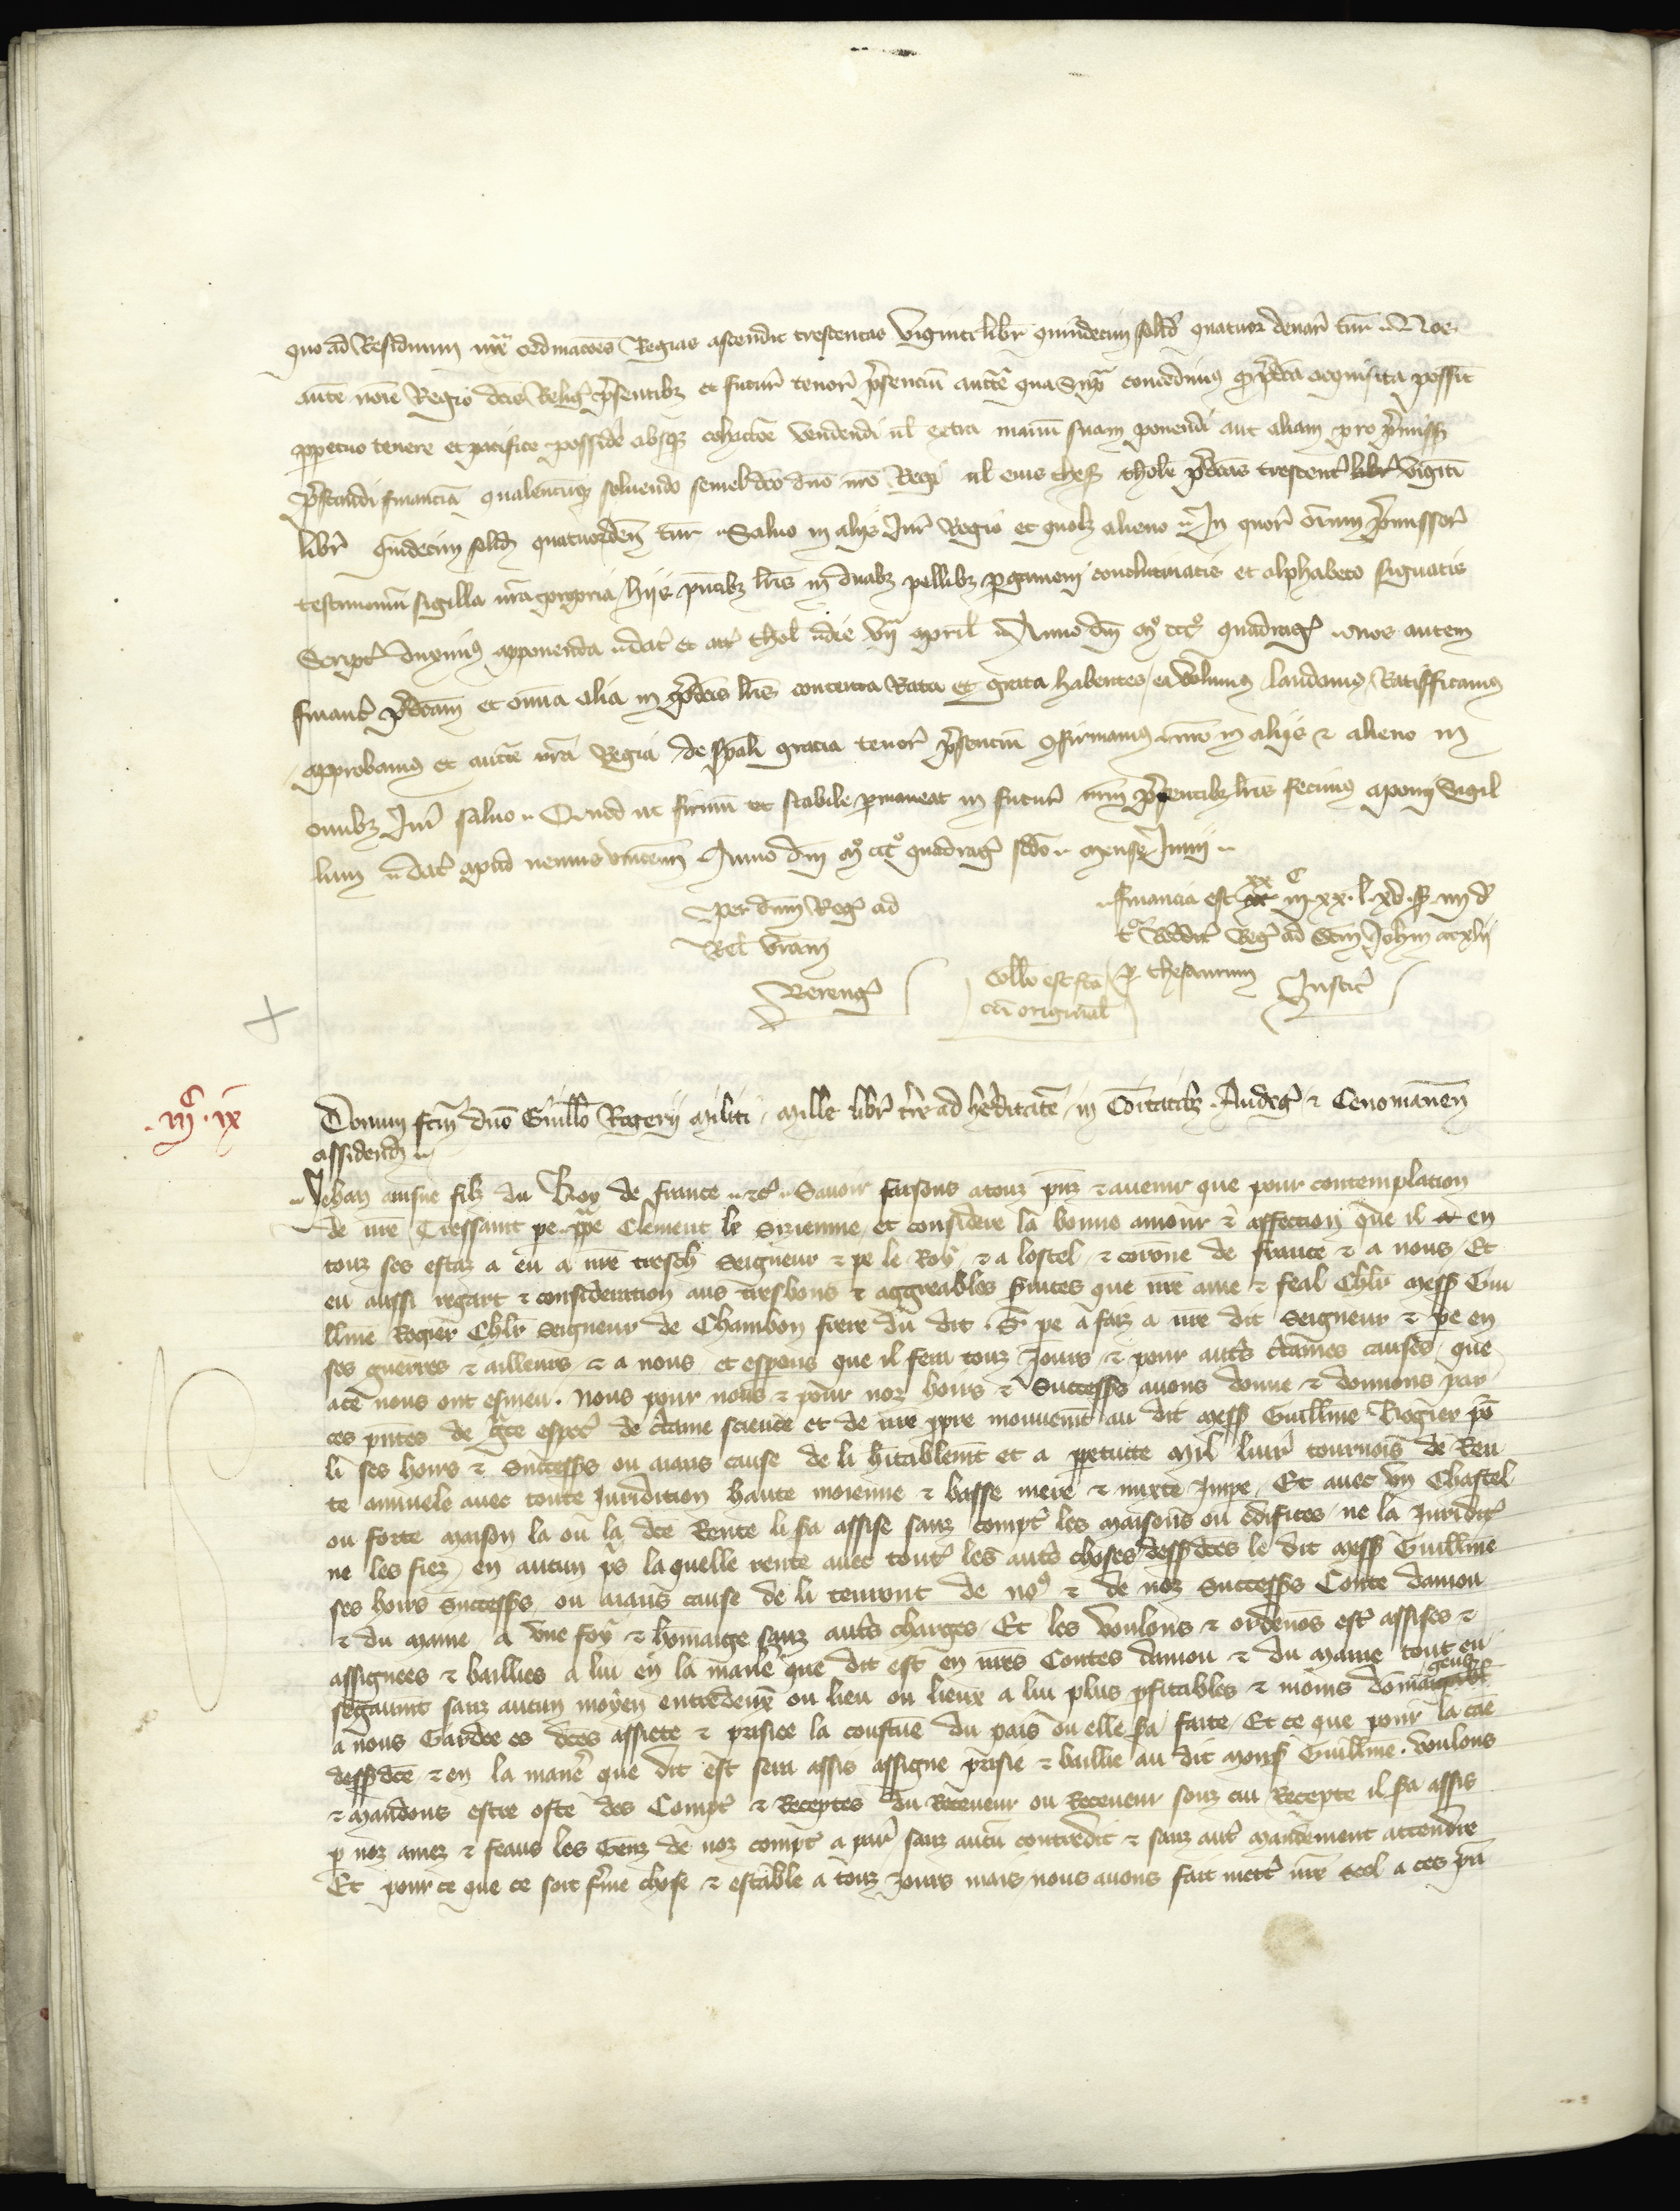 quo ad Residuum iuxta ordinacoes Regias ascendit trescentas viginti libr quindecim solid quatuor denar tur Nos
aucte nom Regio dcis Relig presentibz et futur tenore presenciu aucte qua supra concedimus predicta acquisita possint
perpetuo tenere et pacifice possidere absqz cohactoe vendendi ul extra manu suam ponendi aut aliam pro premissis
prestandi financia qualencunqz solvendo semel dco dno nro Regi ul eius thes Thole predcas trescent libr viginti
libr quindecim solid quatuor den tur Salvo in aliis Jure Regio et quolz alieno In quor omnium premissor
testimoniu sigilla nra propria hiis pntibz lris in duabz pellibz pergameni conglutinatis et alphabeto signatis
Script duximus apponenda dat et act Thol die VII april Anno dni m ccc quadrag Nos autem
financ predcam et omnia alia in predcis lris contenta Rata et grata habentes ea volumus laudamus Ratifficamus
approbamus et aucte nra Regia de spali gracia tenore presenciu confirmamus nro in aliis & alieno in
omnibz Jure salvo Quod ut firmu et stabile permaneat in futur nrm presentibz lris fecimus apponi Sigil
lum dat apud nemus vincenn Anno dni m ccc quadrag scdo mense Junii
Per dnm Reg ad
Rel vram
Bereng
financia est xx III C xx l xv s IIII d
t Reddit Reg ad scm Johem xlii
Collo est fca
cu originali
per thesaurum
Justic
m C ix
Donum fcm dno Guillo Rogerii militi mille libr terre ad hereditate in Comitatibz Andeg & Cenomanen
assidend
Jehan ainsne filz du Roy de france etc Savoir faisons a touz pnz & avenir que pour contemplation
de nre Tressaint pe ppe Clement le Sizienne et considere la bonne amour & affection que il en
touz ses estaz a eu a nre tresch Seigneur & pe le Roy & a lostel & coronne de france & a nous Et
eu aussi regart & consideration aus tresbons & aggreables services que nre ame & feal Chlr mess Gui
llme Rogier Chlr Seigneur de Chambon frere du dit S pe a faiz a nre dit Seigneur & pe en
ses guerres & ailleurs & a nous et esperons que il fera touz Jours & pour autres certaines causes que
ace nous ont esmeu Nous pour nous & pour noz hoirs & Successrs avons donne & donnons par
ces pntes de gce espec de certaine science et de nre ppre mouvemt au dit mess Guillme Rogier po
li ses hoirs & Successrs ou aians cause de li hitablemt et a perpetuite mil livr tournois de Ren
te annuele avec toute Juridition haute moienne & basse mere & mixte Impe Et avec un Chastel
ou forte maison la ou la dce Rente li sera assise sanz compt les maisons ou edifices ne la Juridic
ne les fiez en aucun ps laquelle rente avec tout les autres choses dessus dces le dit mess Guillme
ses hoirs Successrs ou aians cause de li tenront de nos & de noz Successrs Conte danjou
& du maine a une foy & homaige sanz autres charges Et les voulons & ordenons est assises &
assignees & baillies a lui en la maniere que dit est en nres Contes danjou & du maine tout en
segaumt sanz aucun moyen entredeux ou lieu ou lieux a lui plus pfitables & moins domaigeux
a nous Gardee es dces assiete & prisiee la coustume du pais ou elle sera faite Et ce que pour la cae
dess dce & en la manere que dit est sera assis assigne prisie & baillie au dit mons Guillme voulons
& mandons estre oste des Compt & Receptes du Receveur ou Receveur souz cui Recepte il sera assis
p noz amez & feaus les Genz de noz compt a paris sanz aucu contredit & sanz autr mandement attendre
Et pour ce que ce soit ferme chose & estable a touz jours mais nous avons fait mettr nre scel a ces pn